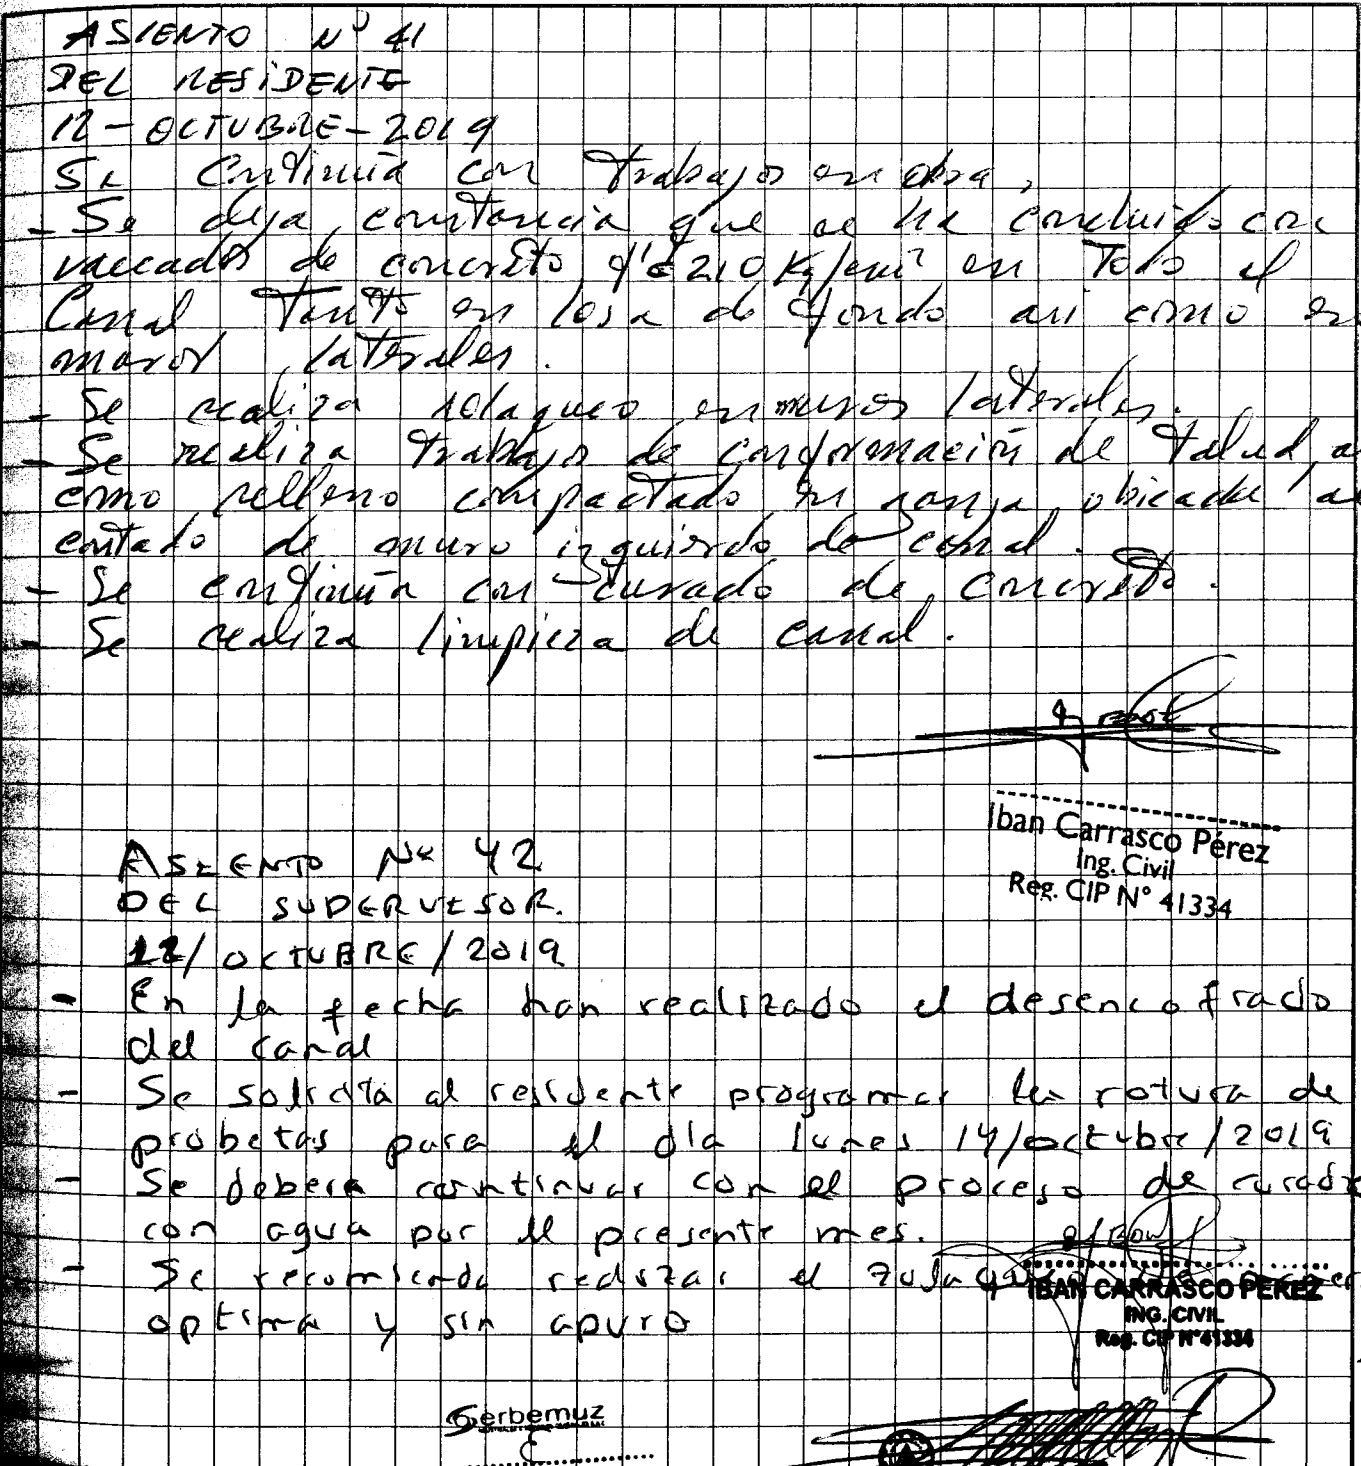 ASIENTO Nº 41
DEL RESIDENTE
12-OCTUBRE-2019
Se Continúa con trabajos en obra.
- Se deja constancia que se ha concluido con
vaceados de concreto f'c 210 Kg/cm² en Todo el
Canal Tanto en losa de fondo asi como en
muros laterales.
- Se realiza solaqueo en muros laterales.
- Se realiza trabajos de conformación de talud, as
como relleno compactado en zanja obicada al
contado de muro izquierdo de canal.
- Se continúa con curado de concreto.
- Se realiza limpieza de canal.
Iban Carrasco Pérez
Ing. Civil
Reg. CIP N° 41334
ASIENTO Nº 42
DEL SUPERVISOR.
12/OCTUBRE/2019
- En la fecha han realizado el desencofrado
del canal
- Se solicita al residente programar la rotura de
probetas para el dia lunes 14/octubre/2019
- Se debera continuar con el proceso de curado
con agua por el presente mes.
- Se recomienda realizar el
optima y sin apuro
IBAN CARRASCO PEREZ
ING. CIVIL
Reg. CIP N°41334
Serbemuz